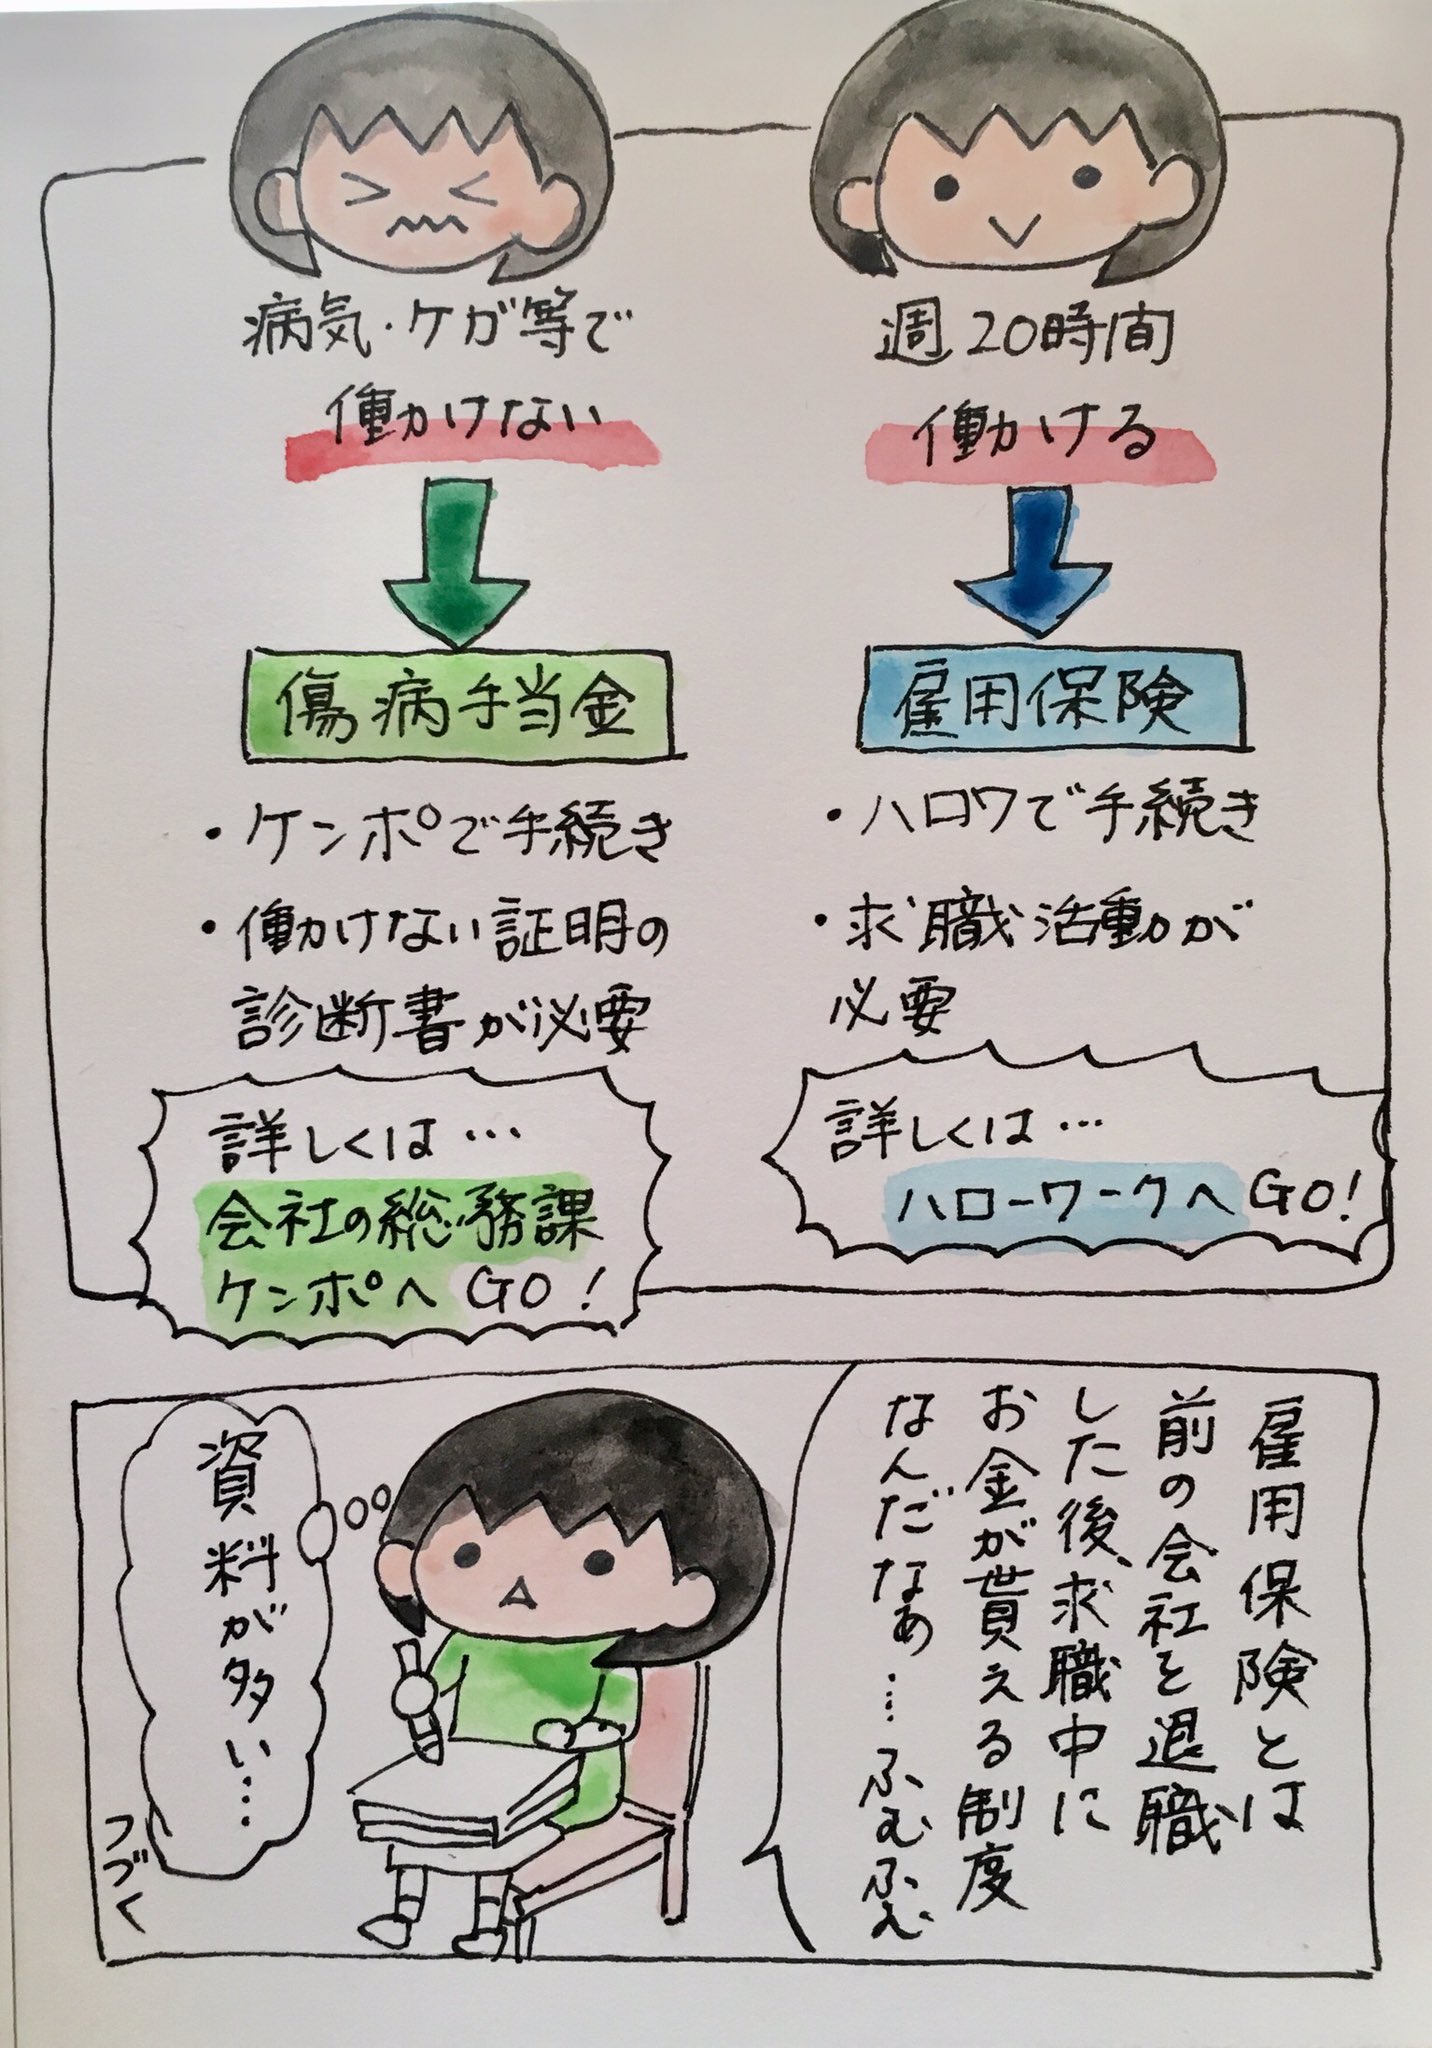 病気・ケガ等で
働かけない
傷病手当金
・ケンポで手続き
・働かけない証明の
診断書が必要
詳しくは…
会社の総務課
ケンポへGO!
週20時間
働かける
雇用保険
・ハロワで手続き
・求職活動が
必要
詳しくは…
ハローワークへGO!
雇用保険とは
前の会社を退職
した後、求職中に
お金が貰える制度
なんだなぁ……ふむふむ
資料が多い…
つづく